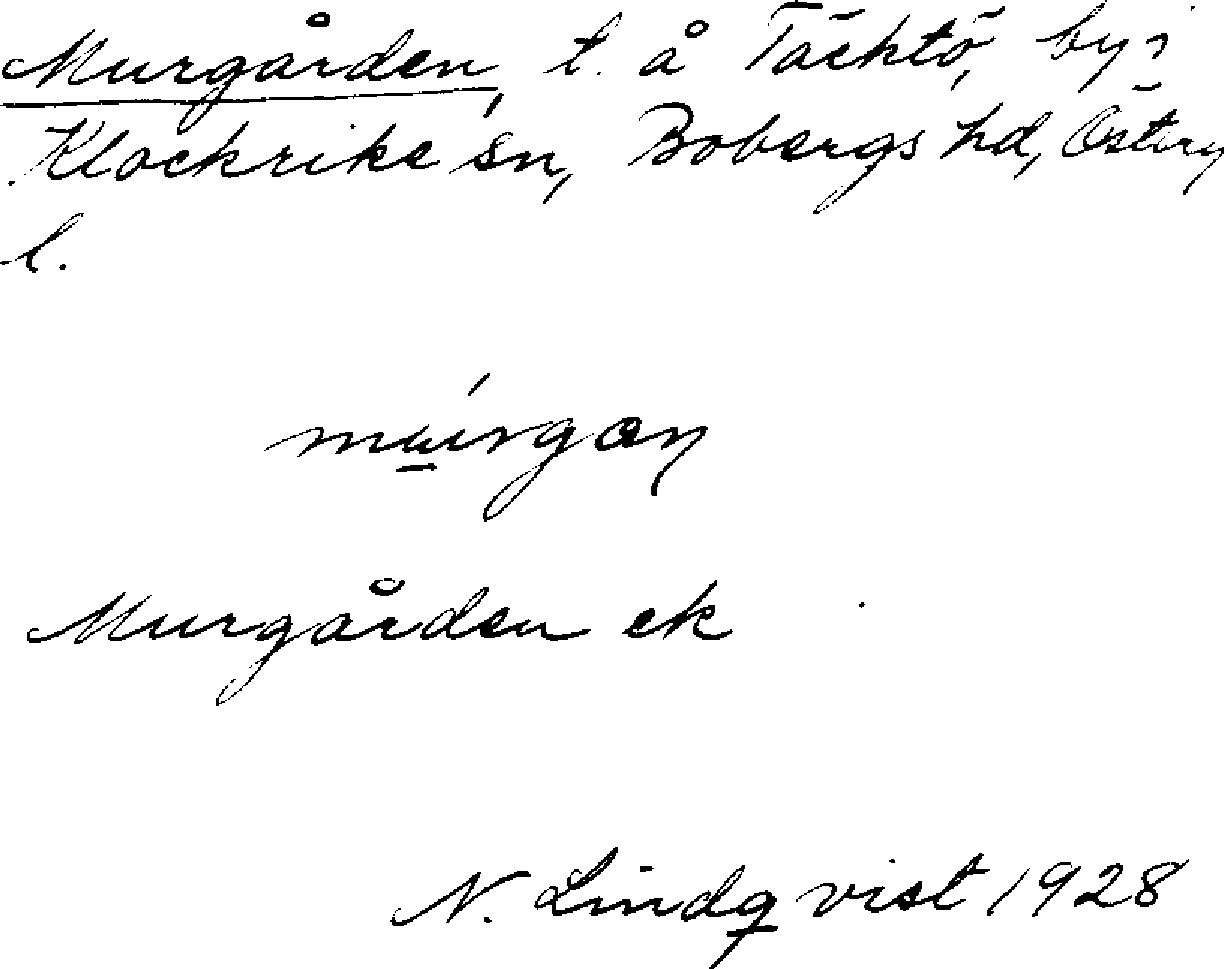 Murgården, t. å Täcktö, by i
Klockrike sn, Bobergs hd, Österg
l.
Murgården ek
N. Lindqvist 1928